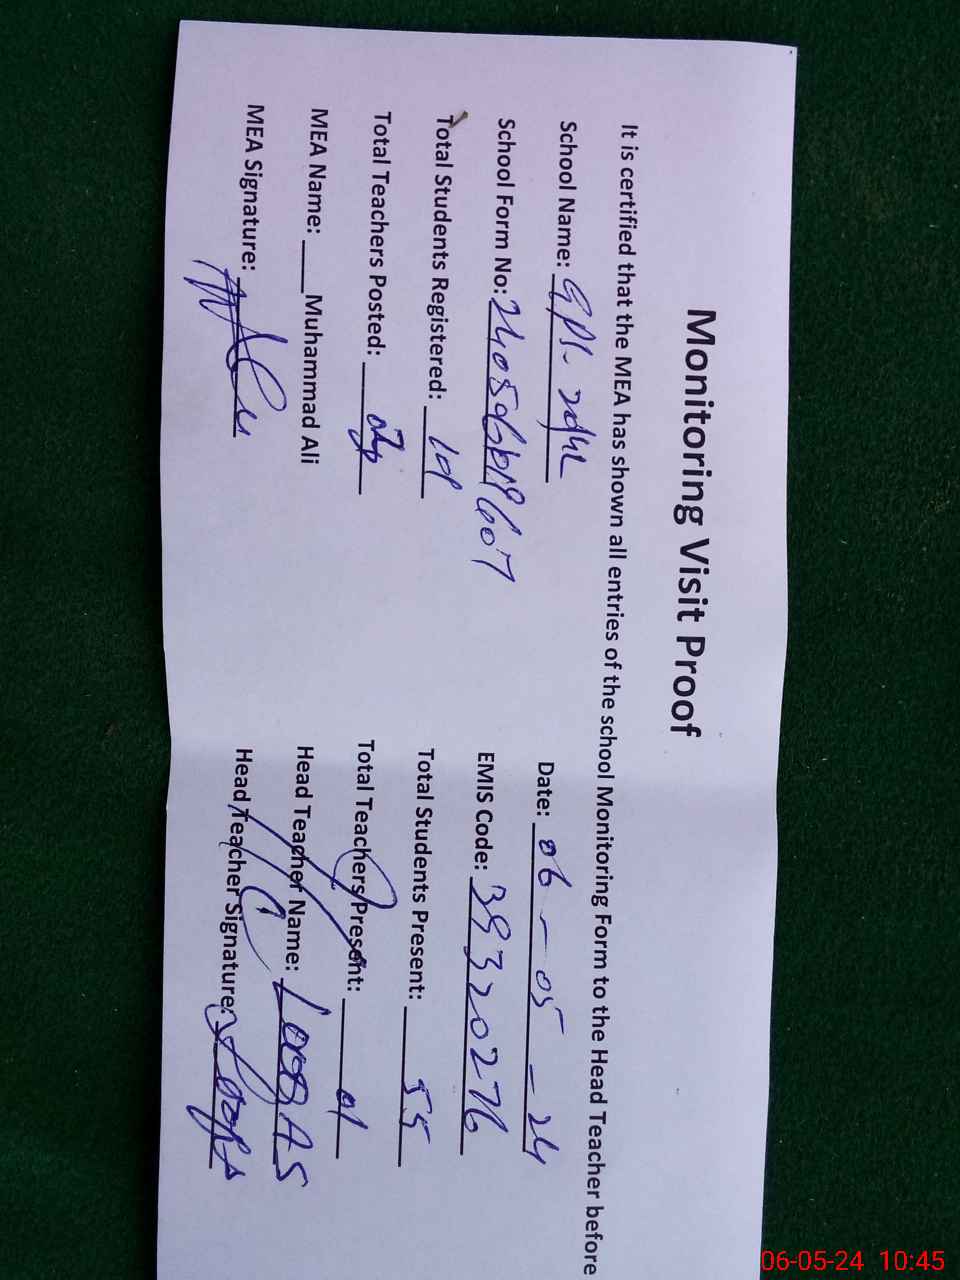 Monitoring Visit Proof
It is certified that the MEA has shown all entries of the school Monitoring Form to the Head Teacher before
School Name: GPS. Date: 06-05-24
School Form No: EMIS Code: 39320276
Total Students Registered: 101 Total Students Present: 55
Total Teachers Posted: Total Teachers Present: 01
MEA Name: Muhammad Ali Head Teacher Name:
MEA Signature: Head Teacher Signature:
06-05-24 10:45